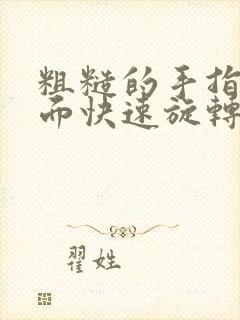 粗糙的手指
而快速旋轉
翟姓